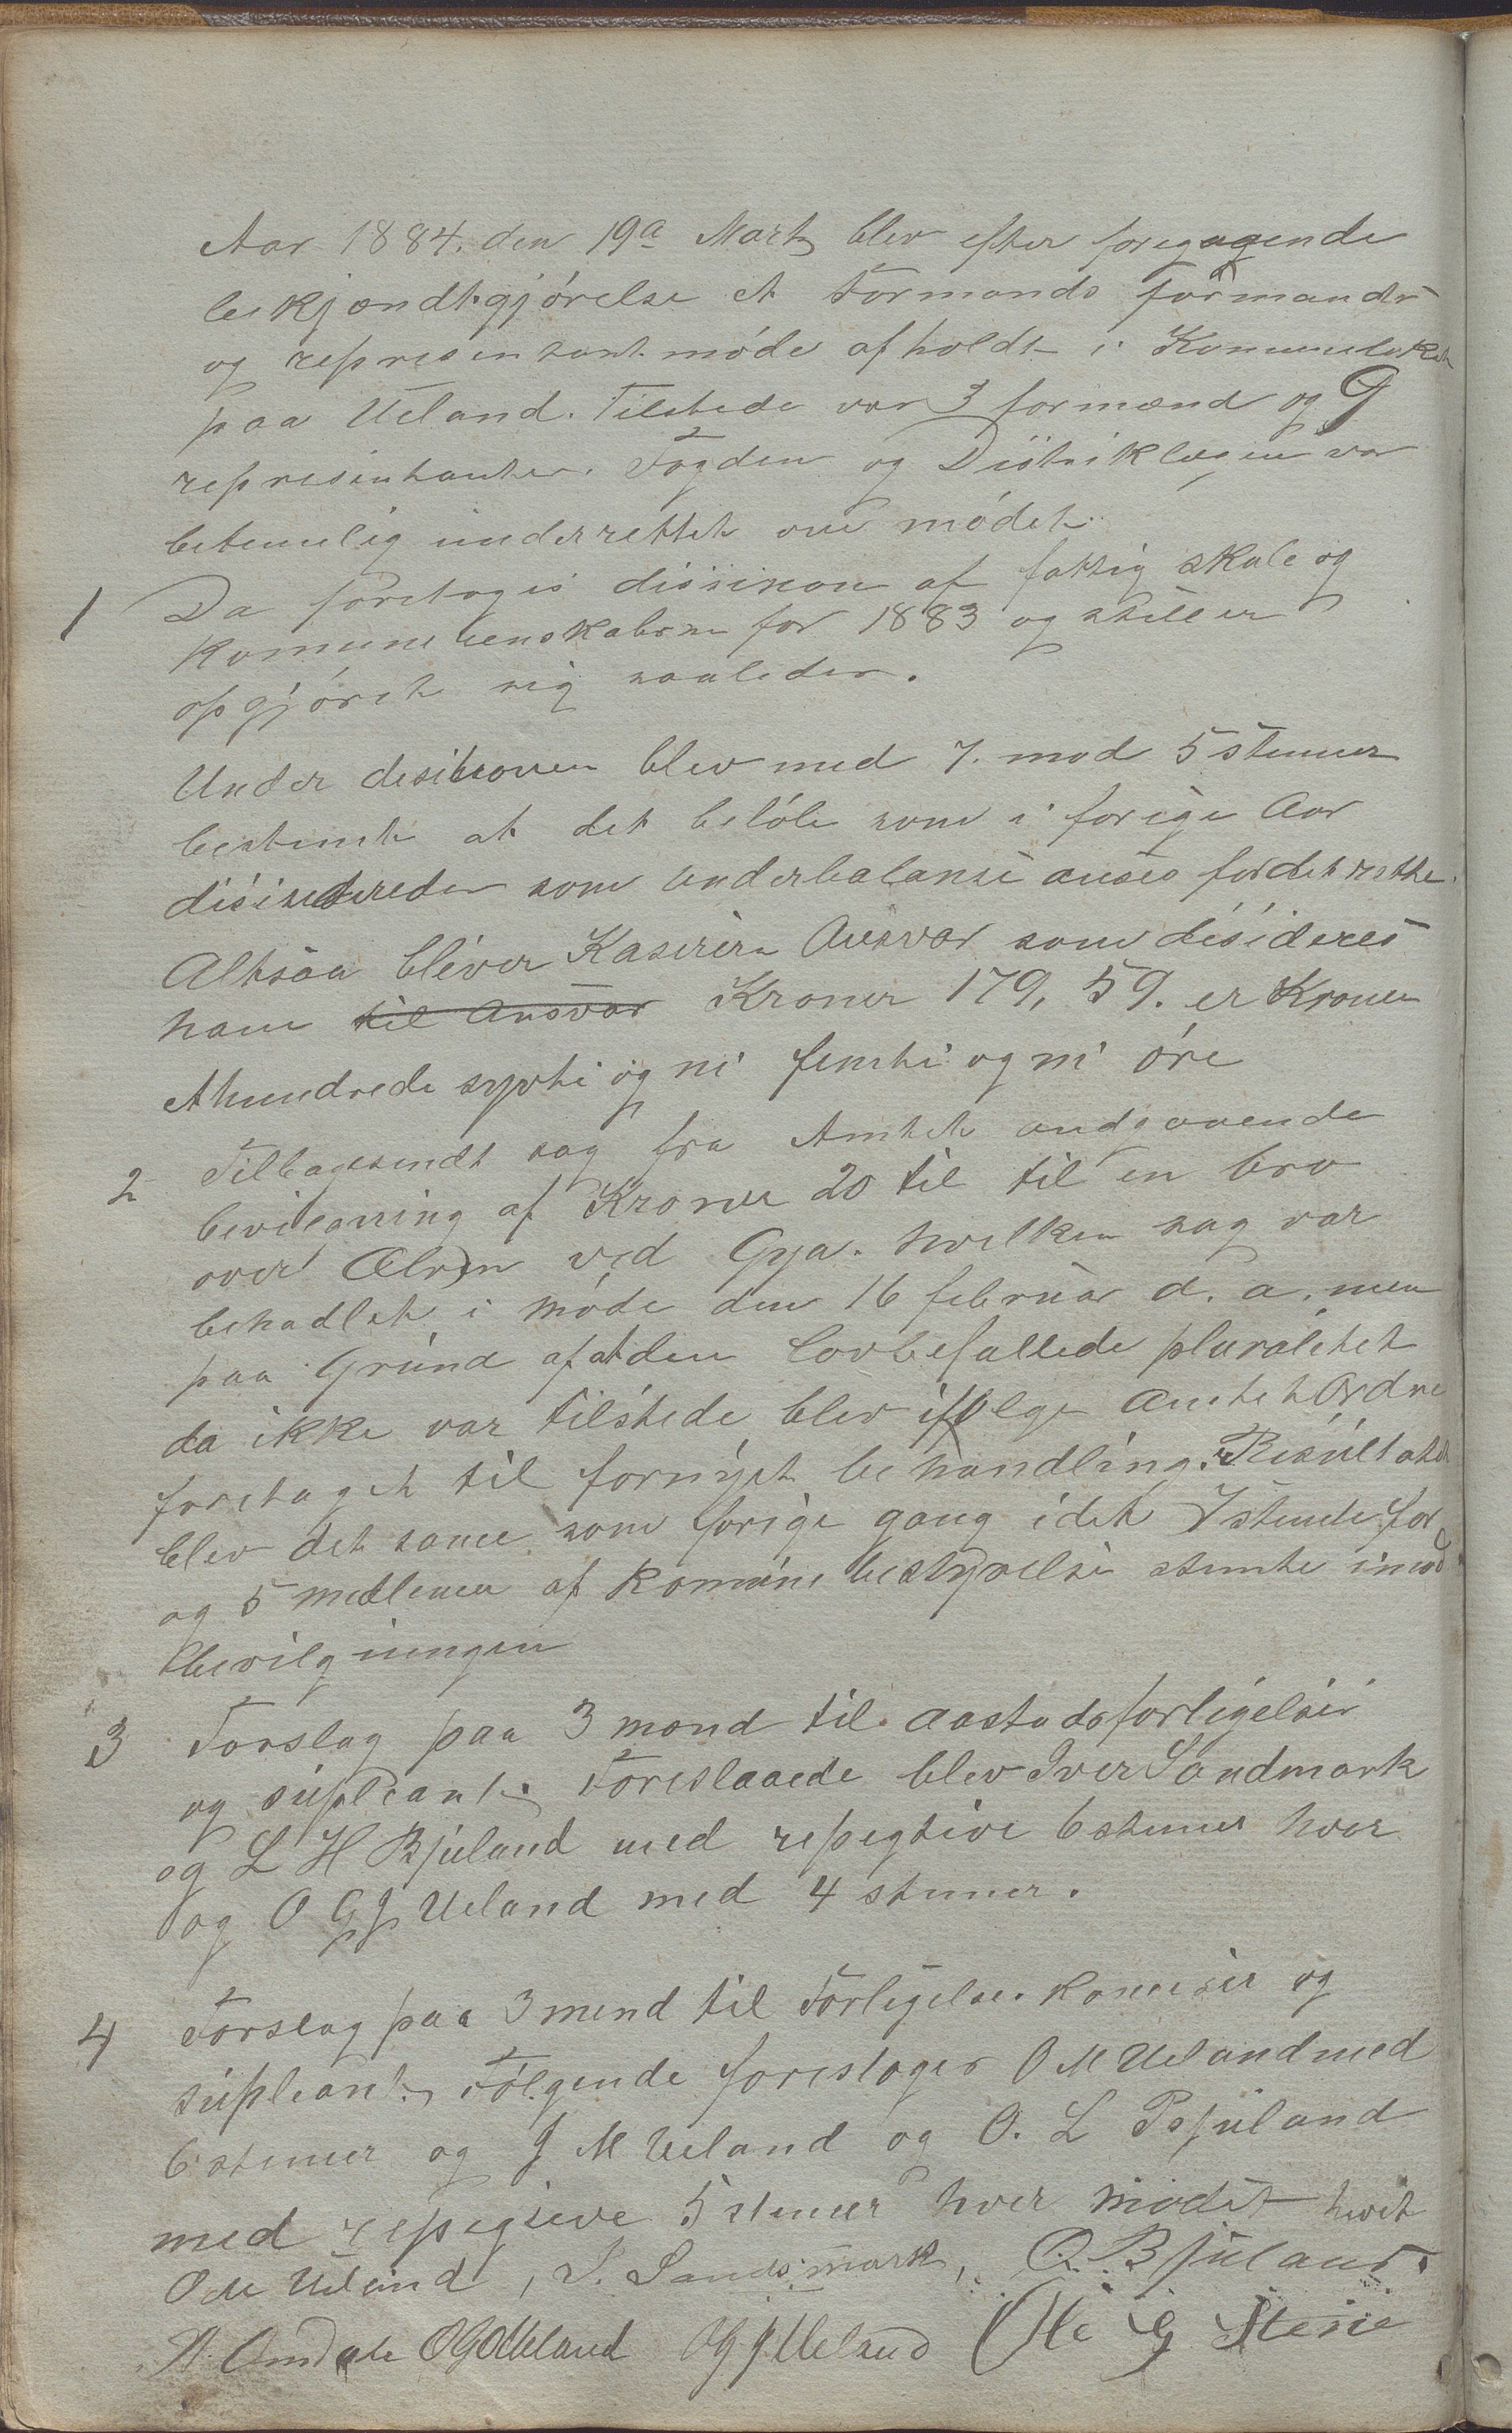 Aar 1884. den 19a Marts blev efter foregagende
bekjændtgjörelse et Formands formands
og representantmöde afholdt i Komunelokal
paa Ueland. Tilstede var 3 formænd og 9
representanter. Fogden og Distriklægen var
betimelig underrettet om mödet.
1 Da foretoges dissision af fattig skole og
komune renskaberne for 1883 og stiller
opgjöret sig saaledes.
Under desisionen blev med 7. mod 5 stemer
bestemt at det belöb som i forige Aar
disideredes som Underbalanse anses for det rette.
Altsaa bliver Kaserern Ansvar som disideres
ham til Ansvar Kroner 179, 59. er Kroner
et hundrede sytti og ni femti og ni öre
2 Tilbagesendt sag fra Amtet andgaaende
bevilgning af Kroner 20 til til en bro
over Elven ved Gya. hvilken sag var
behadlet i möde den 16 februar d. a. men
paa Grund af at den lovbefallede pluralitet
da ikke var tilstede blev ifölge Amtet Ordre
foretaget til fornyet behandling. Resultatet
blev det same som forige gang idet 7 stemte for
og 5 medlemer af Komune bestyrelse stemte imod
bevilgningen
3 Forslag paa 3 mænd til aastadsforligelser
og supleant. Foreslaaede blev Iver Sandmark
og L H Bjuland med repegtive 6 stemer hver
og O G J Ueland med 4 stemer.
4 Forslag paa 3 mend til Forligelses Komisir og
supleant. Fölgende foreslages O M Ueland med
6 stemer og J M Ueland og O. L Bjuland
med repegtive 5 stemer hver mödet hevet
O M Ueland, I. Sandsmark, O. Bjuland.
Omdale O G O Ueland O G J Ueland Ole G Stene